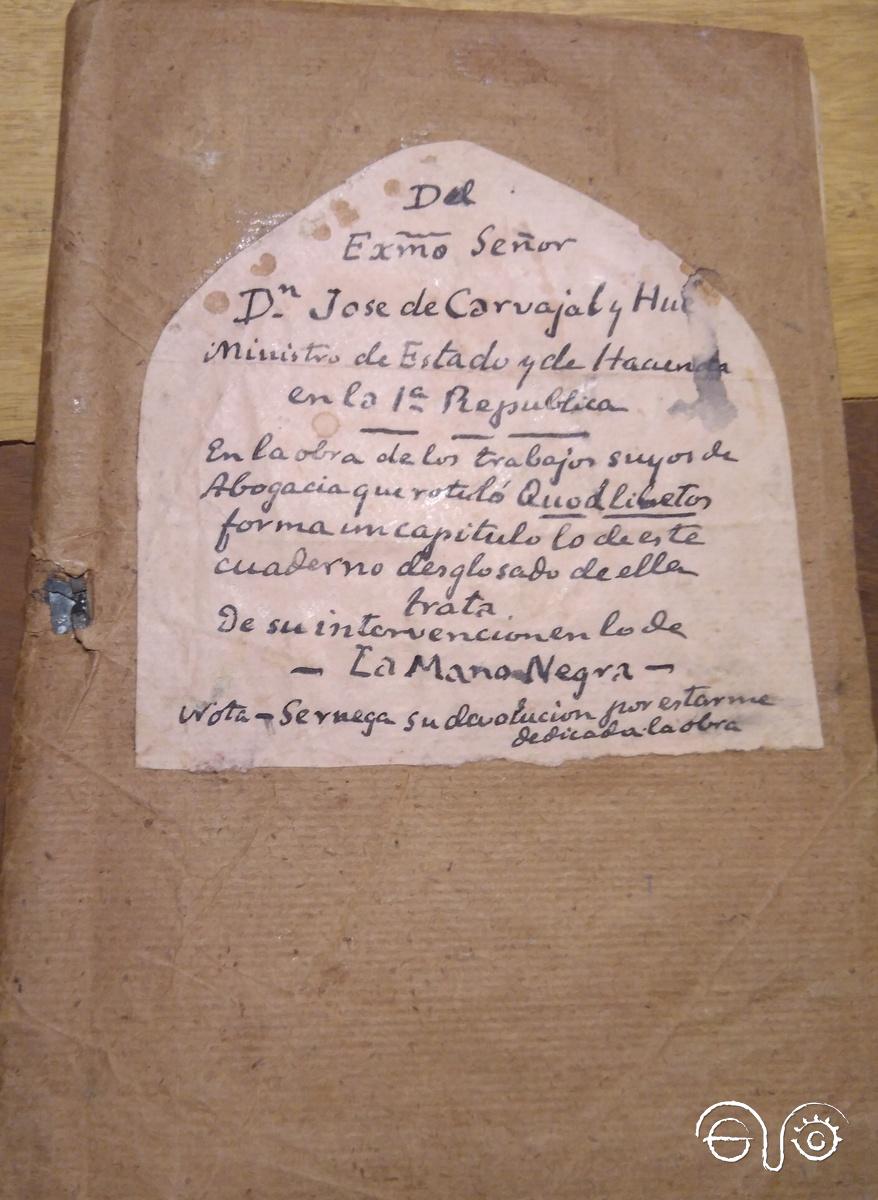 Del
Exm̃o Señor
D.ⁿ Jose de Carvajal y Hué
Ministro de Estado y de Hacienda
en la 1ª Republica
En la obra de los trabajos suyos de
Abogacia que rotuló Quodlibetos
forma un capitulo lo de este
cuaderno desglosado de ella
trata
De su intervencion en lo de
— La Mano Negra —
Nota – Se ruega su devolucion por estarme
dedicada la obra